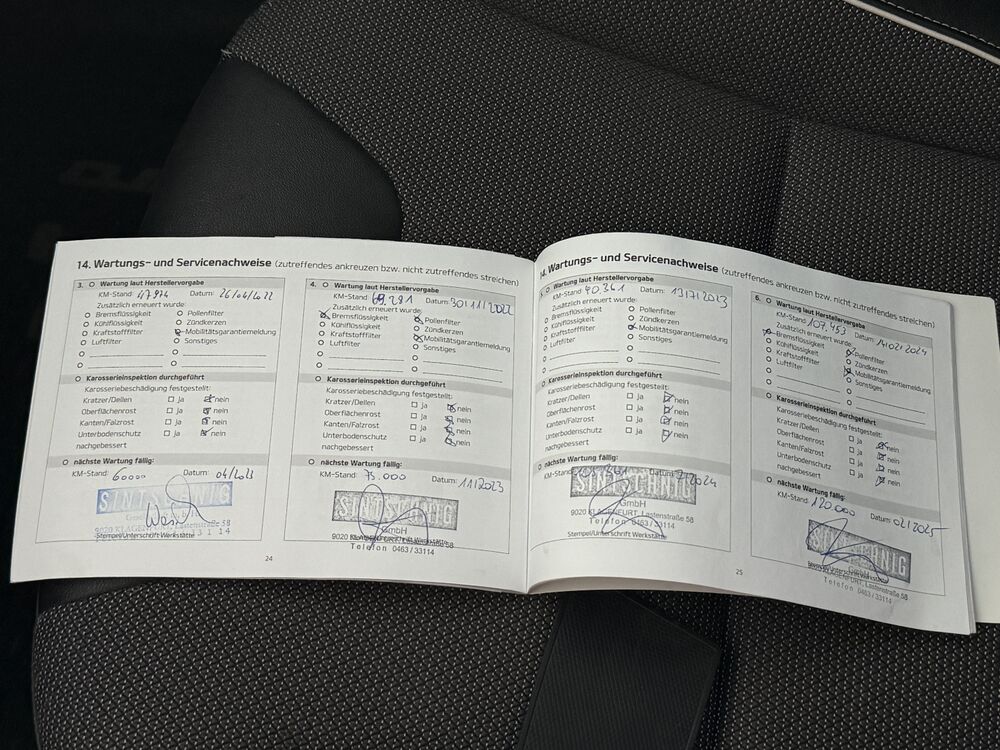 14. Wartungs- und Servicenachweise (zutreffendes ankreuzen bzw. nicht zutreffendes streichen)
3. Wartung laut Herstellervorgabe
KM-Stand: 47974 Datum: 26/04/2022
Zusätzlich erneuert wurde:
Bremsflüssigkeit Pollenfilter
Kühlflüssigkeit Zündkerzen
Kraftstofffilter Mobilitätsgarantiemeldung
Luftfilter Sonstiges
Karosserieinspektion durchgeführt
Karosseriebeschädigung festgestellt:
Kratzer/Dellen ja nein
Oberflächenrost ja nein
Kanten/Falzrost ja nein
Unterbodenschutz ja nein
nachgebessert
nächste Wartung fällig:
KM-Stand: 60000 Datum: 04/2023
SINTSCHNIG
9020 KLAGENFURT, Lastenstraße 58
Stempel/Unterschrift Werkstätte
24
4. Wartung laut Herstellervorgabe
KM-Stand: 69.291 Datum: 30/11/2022
Zusätzlich erneuert wurde:
Bremsflüssigkeit Pollenfilter
Kühlflüssigkeit Zündkerzen
Kraftstofffilter Mobilitätsgarantiemeldung
Luftfilter Sonstiges
Karosserieinspektion durchgeführt
Karosseriebeschädigung festgestellt:
Kratzer/Dellen ja nein
Oberflächenrost ja nein
Kanten/Falzrost ja nein
Unterbodenschutz ja nein
nachgebessert
nächste Wartung fällig:
KM-Stand: 75.000 Datum: 11/2023
SINTSCHNIG
GmbH
9020 KLAGENFURT, Lastenstraße 58
Telefon 0463 / 33114
14. Wartungs- und Servicenachweise (zutreffendes ankreuzen bzw. nicht zutreffendes streichen)
5. Wartung laut Herstellervorgabe
KM-Stand: 90.361 Datum: 13/7/2023
Zusätzlich erneuert wurde:
Bremsflüssigkeit Pollenfilter
Kühlflüssigkeit Zündkerzen
Kraftstofffilter Mobilitätsgarantiemeldung
Luftfilter Sonstiges
Karosserieinspektion durchgeführt
Karosseriebeschädigung festgestellt:
Kratzer/Dellen ja nein
Oberflächenrost ja nein
Kanten/Falzrost ja nein
Unterbodenschutz ja nein
nachgebessert
nächste Wartung fällig:
KM-Stand: Datum: 7/2024
SINTSCHNIG
GmbH
9020 KLAGENFURT, Lastenstraße 58
Telefon 0463 / 33114
Stempel/Unterschrift Werkstätte
25
6. Wartung laut Herstellervorgabe
KM-Stand: 107.453 Datum: 14/02/2024
Zusätzlich erneuert wurde:
Bremsflüssigkeit Pollenfilter
Kühlflüssigkeit Zündkerzen
Kraftstofffilter Mobilitätsgarantiemeldung
Luftfilter Sonstiges
Karosserieinspektion durchgeführt
Karosseriebeschädigung festgestellt:
Kratzer/Dellen ja nein
Oberflächenrost ja nein
Kanten/Falzrost ja nein
Unterbodenschutz ja nein
nachgebessert
nächste Wartung fällig:
KM-Stand: 120.000 Datum: 02/2025
SINTSCHNIG
Lastenstraße 58
Telefon 0463 / 33114